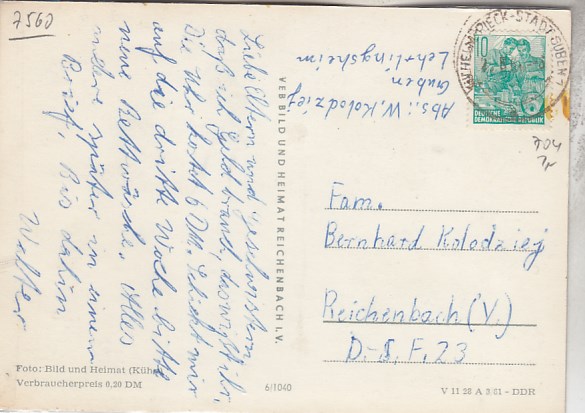 7560
Liebe Eltern und Geschwistern,
daß ich Geld brauch, damit ihr,
Die Uhr kostet 6 DM. Schickt mir
auf die dritte Woche bitte
neue Bettwäsche. Alles
nähere später in einem
Brief. Bis dahin
Walter
VEB BILD UND HEIMAT REICHENBACH I. V.
Abs.: W. Kolodziej
Guben
Lehrlingsheim
WILHELM-PIECK-STADT GUBEN
10
DEUTSCHE
DEMOKRATISCHE REPUBLIK
704
Fam.
Bernhard Kolodziej
Reichenbach (V.)
D.-S. F. 23
Foto: Bild und Heimat
Verbraucherpreis 0,20 DM
6/1040
V 11 28 A 3/61 - DDR